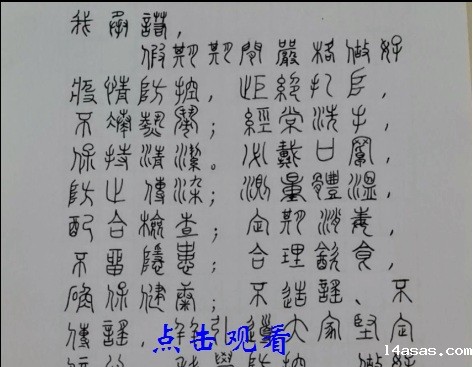 我承諾，
假期期間嚴格做好
疫情防控，拒絕扎, 
不凑熱鬧；經常洗手，
保持清潔。必戴口罩，
防止傳染；測量體溫，
配合檢查；定期消毒，
不留隱患；合理飲食，
確保健康；不造謠、不
傳謠，引導大家堅定
防控
点击观看
14asas.com